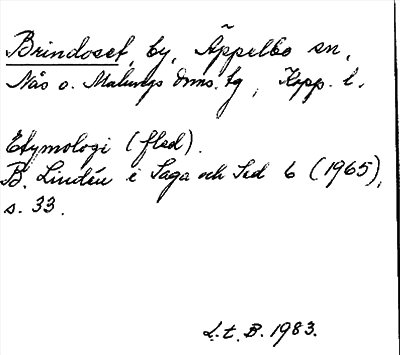 Brindoset, by, Äppelbo sn,
Nås o. Malungs dms. tg, Kopp. l.
Etymologi (fled).
B. Lindén i Saga och Sed 6 (1965),
s. 33.
L.t. B. 1983.